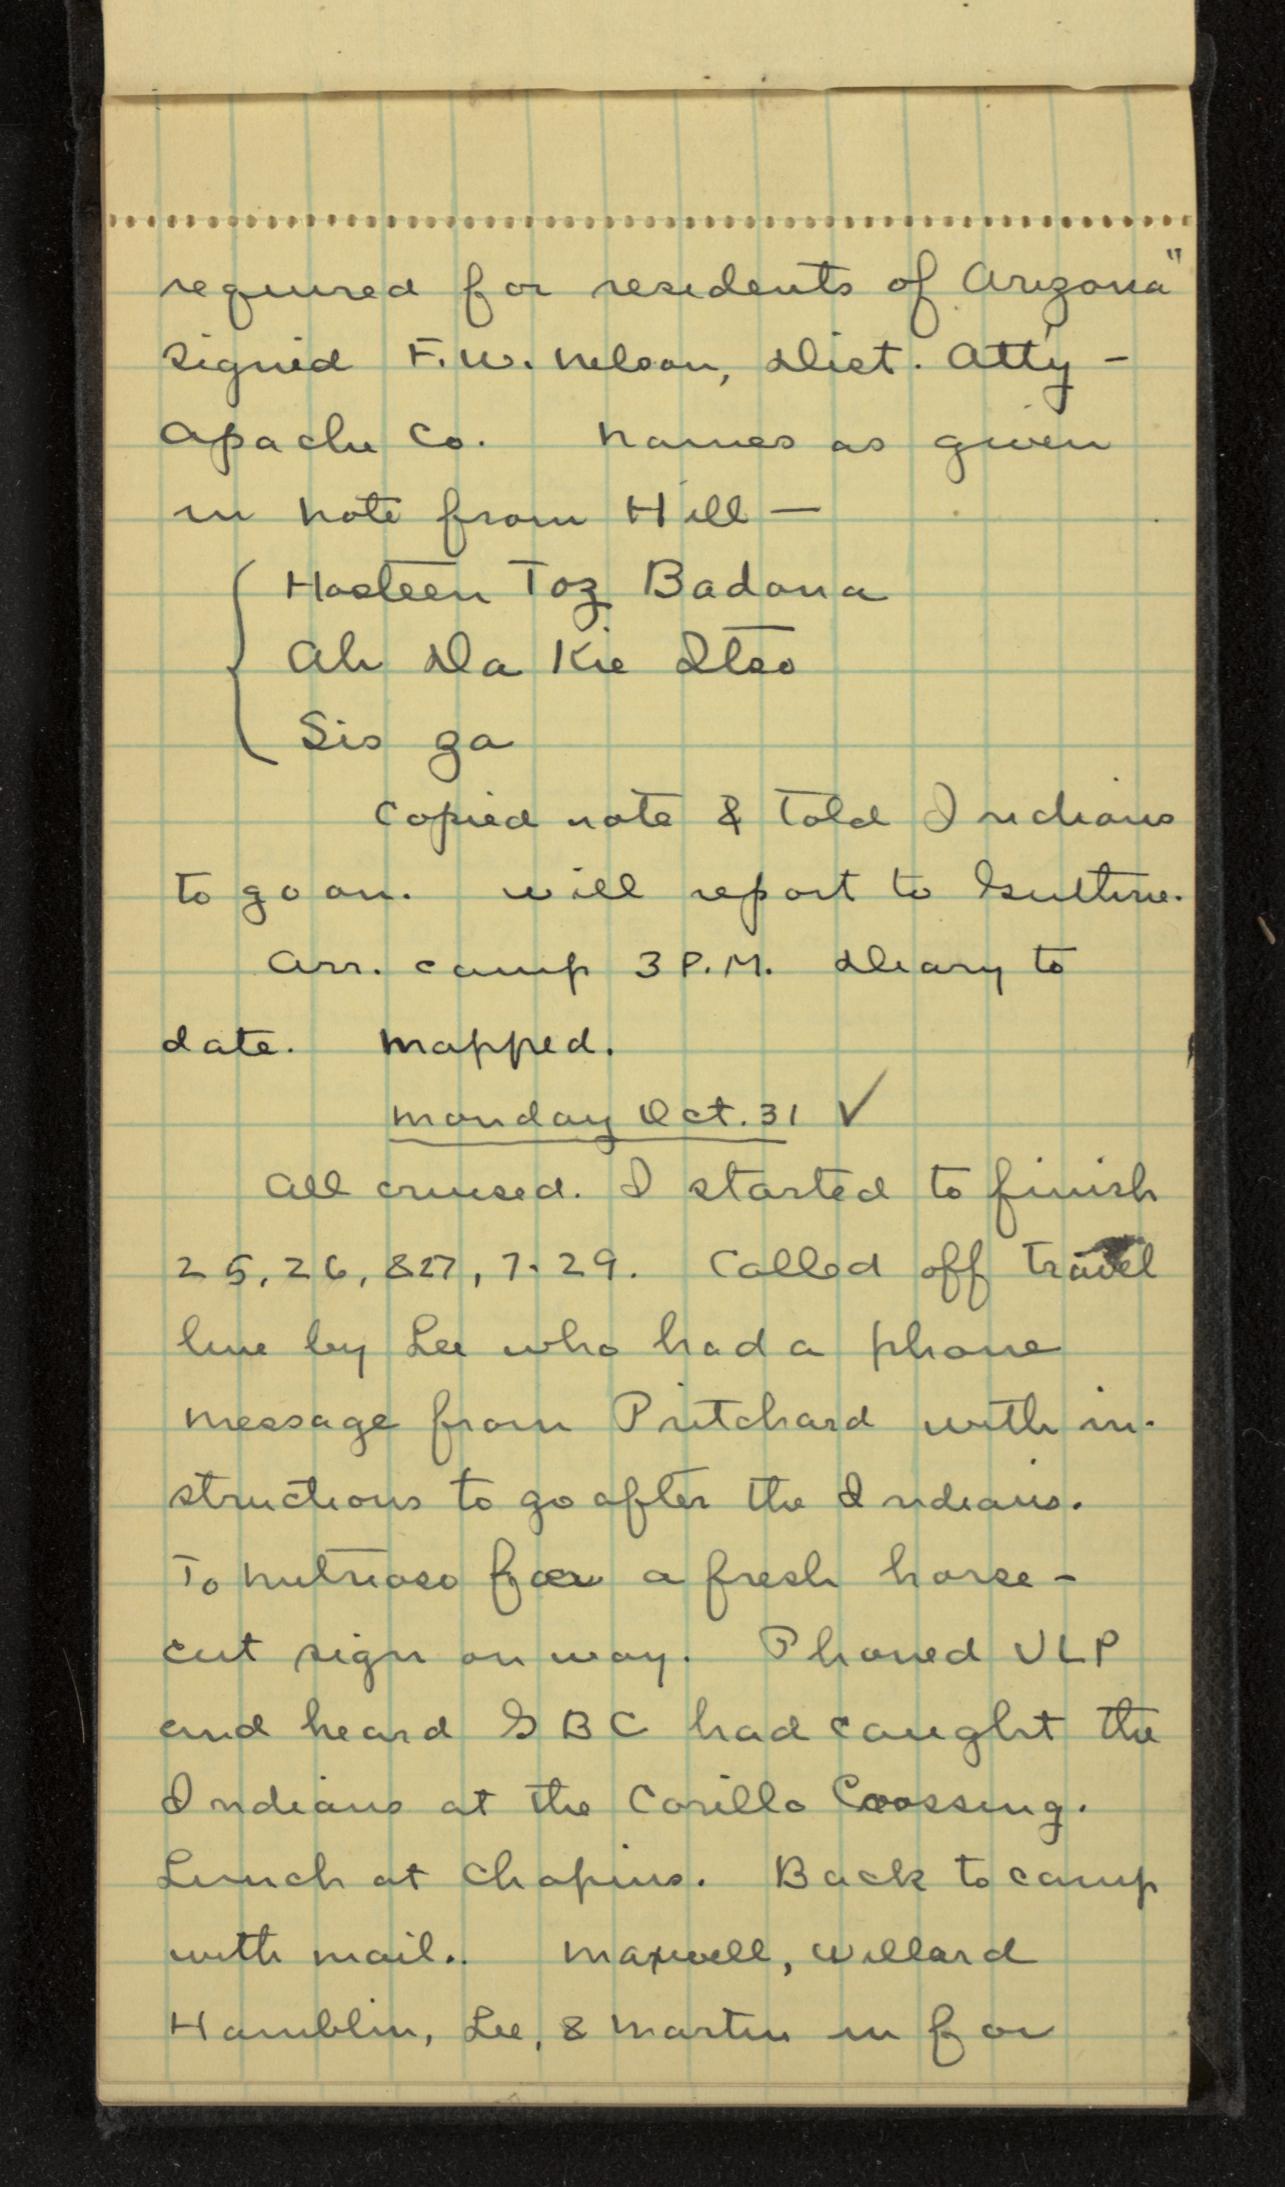 required for residents of Arizona"
signed F.W. Nelson, Dist. Atty -
Apache Co. Names as given
in note from Hill —
Hosteen Toz Badona
Ah Da Kie Itso
Sis ga
Copied note & told Indians
to go on. will report to Guthrie.
Arr. camp 3 P.M. Diary to
date. Mapped.
Monday Oct. 31 ✓
All cruised. I started to finish
25, 26, &27, 7-29. Called off travel
line by Lee who had a phone
message from Pritchard with in-
structions to go after the Indians.
To Nutrioso for a fresh horse -
cut sign on way. Phoned VLP
and heard GBC had caught the
Indians at the Corillo Crossing.
Lunch at Chapins. Back to camp
with mail.. Maxwell, Willard
Hamblin, Lee, & Martin in for